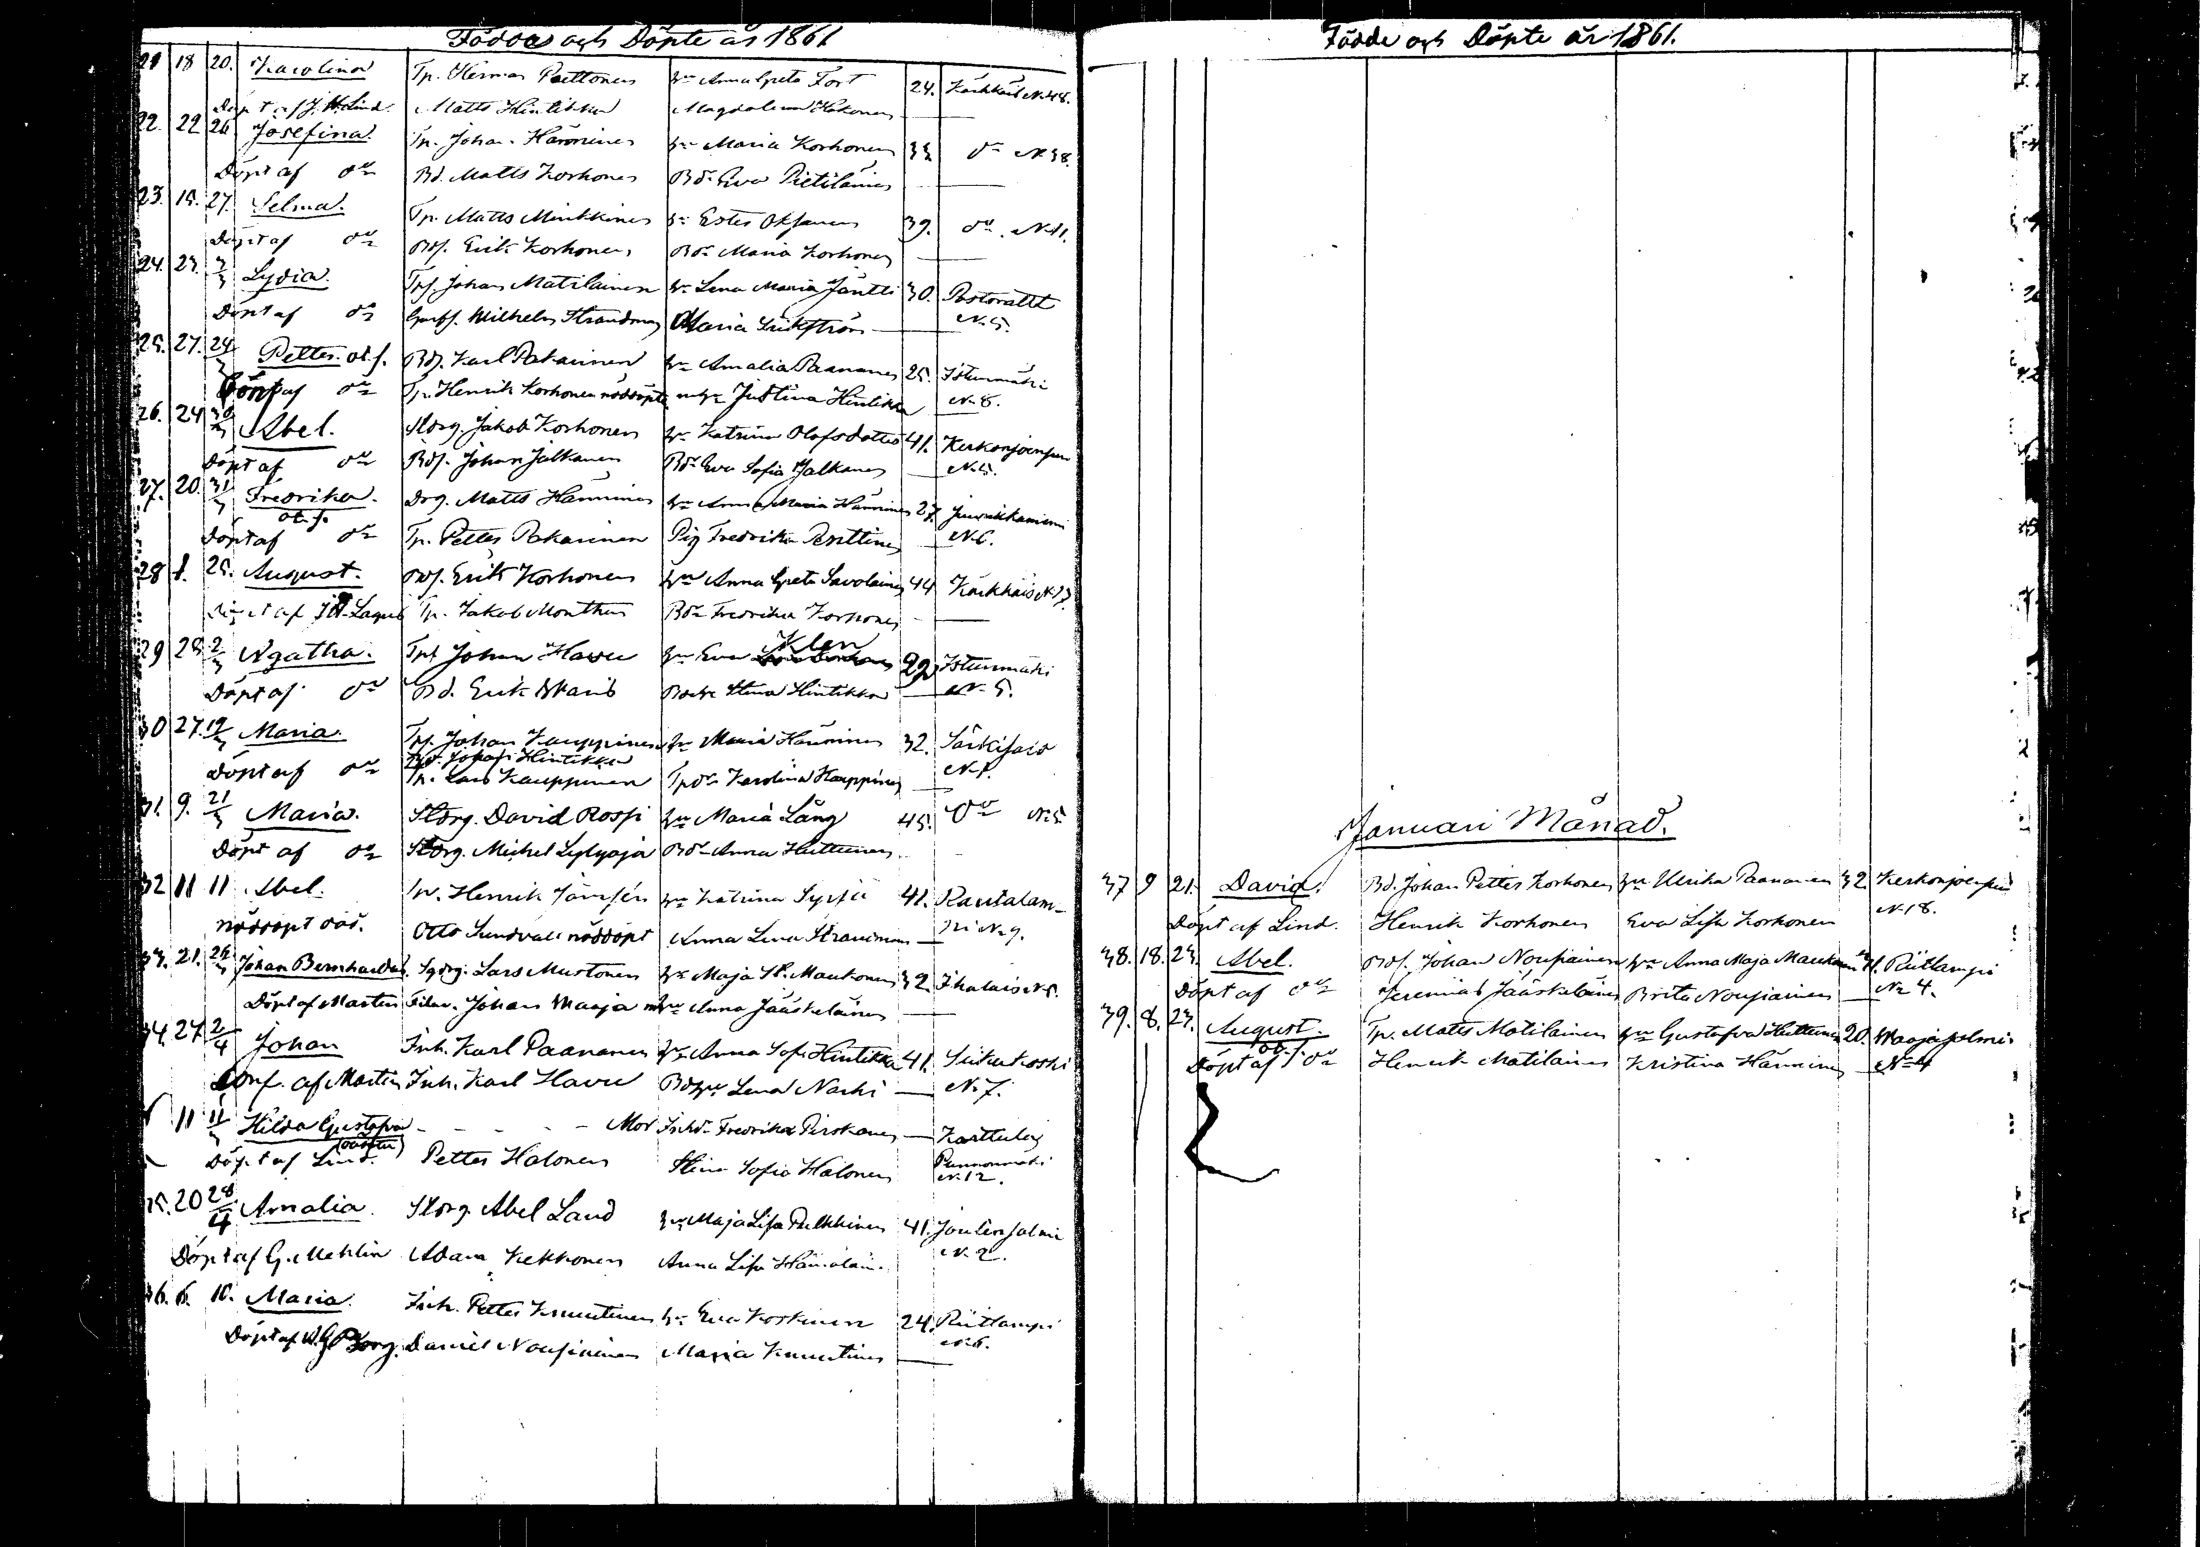 Födde och Döpte år 1861
21 18 20. Karolina Tp. Herman Paettonen hu Anna Greta Fort 24. Kärkkäis N. 48.
Döpt af J. H. Lind. Matts Hintikka Magdalena Hakonen
22. 22 26 Josefina Tp. Johan Hänninen hu Maria Korhonen 33 do N. 38.
Döpt af do Bd. Matts Korhonen Bdr Eva Pietiläinen
23. 15. 27. Selma. Tp. Matts Minkkinen hu Ester Oksanen 39. do N. 11.
Döpt af do Bdf. Erik Korhonen Bdr Maria Korhonen
24. 23. 3/3 Lydia. Tpf. Johan Matilainen hu Lena Maria Jäntti 30. Pastoratet
Döpt af do Wilhelm Strandman Maria N. 5.
25. 27. 24/3 Petter. ob f. Bdf. Karl Pakarinen hu Amalia Paananen 25. Istunmäki
Döpt af do Tp. Henrik Korhonen nöddöpte m hu Justina Hintikka N. 8.
26. 24 30/3 Abel. Storg. Jakob Korhonen hu Katrina Olofsdotter 41. Kerkonjoensuu
Döpt af do Bdf. Johan Jalkanen Bdr Eva Sofia Jalkanen N. 5.
27. 20. 31/3 Fredrika. Drg. Matts Hänninen hu Anna Maria Hänninen 27.
ob. f.
Döpt af do Tp. Petter Pakarinen Pig Fredrika Penttinen N. 6.
28 1. 25. August. Bdf. Erik Korhonen hu Anna Greta Savolainen 44 Kärkkäis N. 17
Döpt af Lagus Tp. Jakob Monthen Bdr Fredrika Korhonen
29 28. 2/3 Agatha. Tpf Johan Havu hu Eva Klen 29 Istunmäki
Döpt af do Bd. Erik Stina Hintikka N. 5.
30 27. 19/3 Maria. Tpf. Johan Kauppinen hu Maria Hänninen 32. Särkisalo
Bd. Johan Hintikka
Döpt af do Tp. Lars Kauppinen Tpdr Karolina Kauppinen N. 1.
31. 9. 21/3 Maria. Storg. David Rossi hu Maria Lång 45. do N. 5
Döpt af do Storg. Michel Lylyoja Bdr Anna Huttunen
32 11 11 Abel. Henrik hu Katrina 41. Rautalam-
nöddöpt Otto Sundvall nöddöpt Anna Lena Strandman pi N. 9.
33. 21. Johan Bernhard Lars Mustonen hu Maja St. Maukonen 32. N. 5.
Döpt af Martin Johan Maaja m hu Anna Jääskeläinen
34. 27. 2/4 Johan Inh. Karl Paananen hu Anna Sofi Hintikka 41. Siikakoski
Konf. af Martin Inh. Karl Havu Lena Narhi N. 7.
11 11/3 Hilda Gustafva - - - - Mor Inhdr Fredrika Pirskanen Karttula
(oäkta)
Döpt af Lind. Petter Halonen Stina Sofia Halonen Punnonmäki
N. 12.
35. 20 28/4 Amalia. Storg. Abel Laud hu Maja Lisa Pulkkinen 41. Joutensalmi
Döpt af G. Mehlin Adam Kekkonen Anna Lisa Hämäläin. N. 2.
36. 6. 10. Maria. Inh. Petter Knuutinen hu Eva Koskinen 24. Riitlampi
Döpt af Borg. Daniel Nousiainen Maria Knuutinen N. 6.
Födde och Döpte år 1861.
Januari Månad.
37 9 21. David. Bd. Johan Petter Korhonen hu Ulrika Paananen 32 Kerkonjoensuu
Döpt af Lind. Henrik Korhonen Eva Lisa Korhonen N. 18.
38. 18. 23. Abel. Bdf. Johan Noupiainen hu Anna Maja Maukonen 41. Riitlampi
Döpt af do Jeremias Jääskeläinen Brita Noupiainen No 4.
39. 8. 23. August. Tp. Matts Matilainen hu Gustafva Huttunen 20. Maajasalmi
ob. f.
Döpt af do Henrik Matilainen Kristina Hänninen No 4